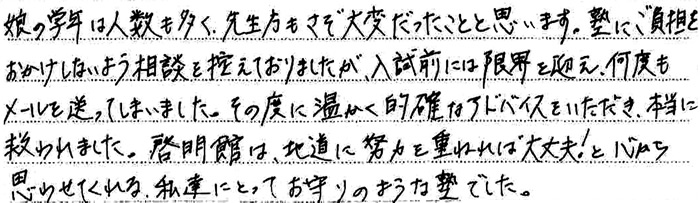 娘の学年は人数も多く、先生方もさぞ大変だったことと思います。塾にご負担を
おかけしないよう相談を控えておりましたが、入試前には限界を迎え、何度も
メールを送ってしまいました。その度に温かく的確なアドバイスをいただき、本当に
救われました。啓明館は、地道に努力を重ねれば大丈夫!と心から
思わせてくれる、私達にとってお守りのような塾でした。